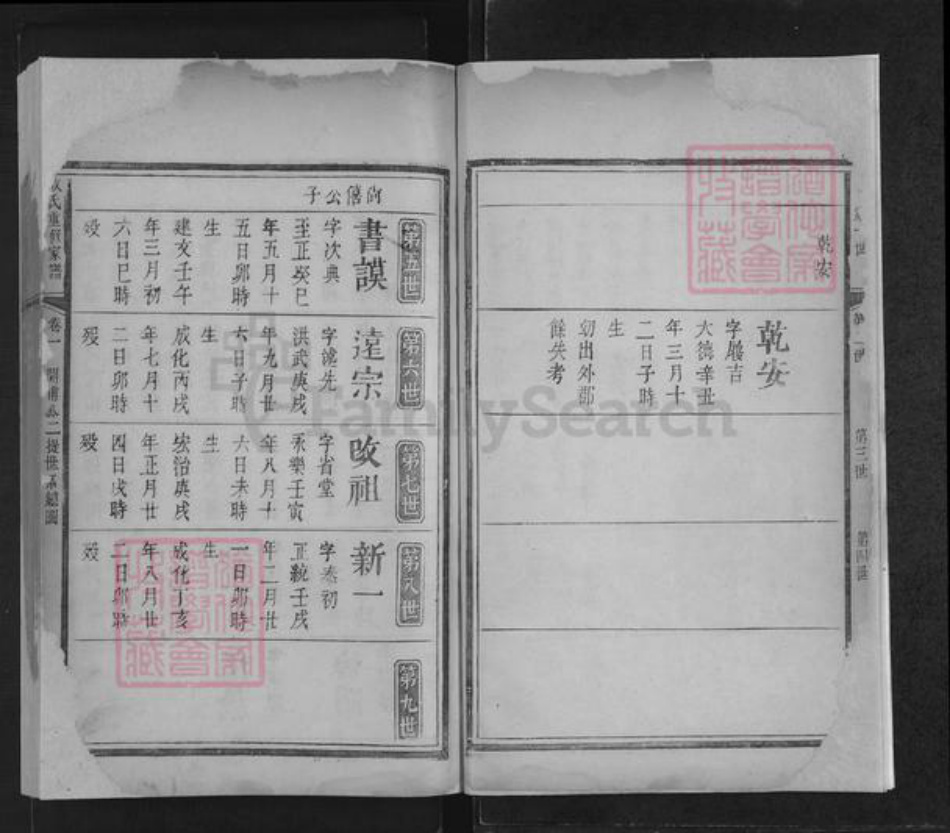 乾安
第三世
第四世
乾安
字殿吉
大德辛丑
年三月十
二日子時
生
幼出外郡
餘失考
尚僖公子
第五世
書謨
字次典
至正癸巳
年五月十
五日卯時
生
建文壬午
年三月初
六日巳時
歿
第六世
遠宗
字
洪武庚戌
年九月廿
六日子時
生
成化丙戌
年七月十
二日卯時
歿
第七世
改祖
字省堂
永樂壬寅
年八月十
六日未時
生
宏治庚戌
年正月廿
四日戌時
歿
第八世
新一
字泰初
正統壬戌
年二月廿
一日卯時
生
成化丁亥
年八月廿
二日卯時
歿
第九世
氏重修家譜
卷一
FamilySearch